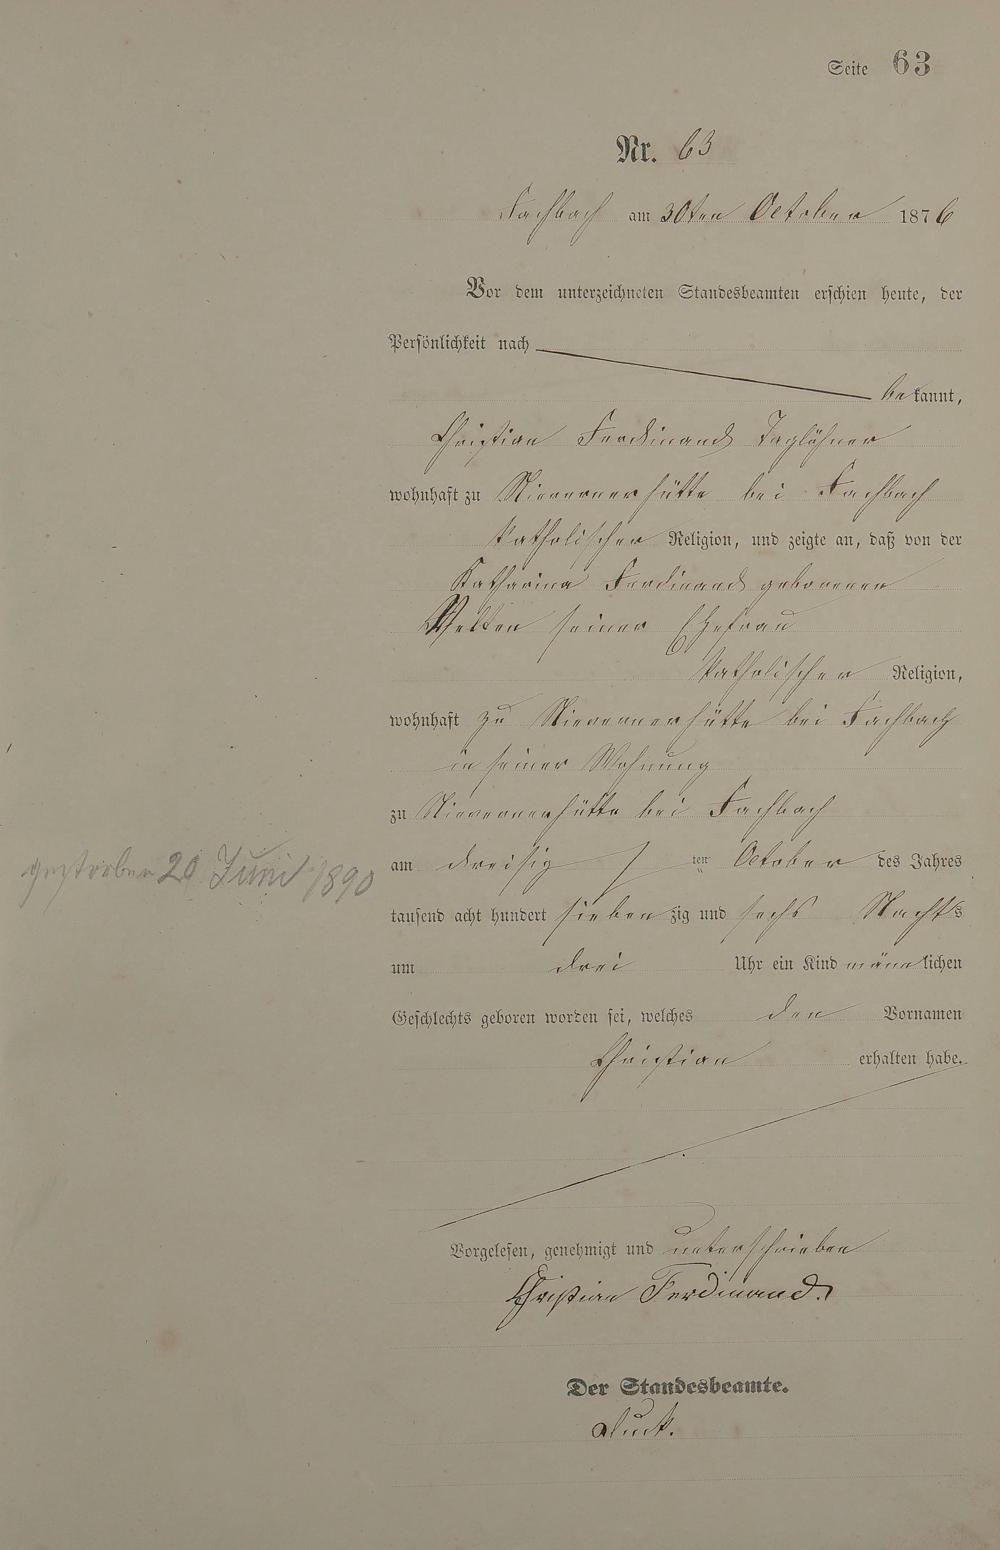 Seite 63
Nr. 63
Fachbach am 30ten October 1876
Vor dem unterzeichneten Standesbeamten erschien heute, der
Persönlichkeit nach
bekannt,
Christian Ferdinand Taglöhner
wohnhaft zu Nievernerhütte bei Fachbach
katholischer Religion, und zeigte an, daß von der
Katharina Ferdinand geborenen
seiner Ehefrau
katholischer Religion,
wohnhaft zu Nievernerhütte bei Fachbach
in seiner Wohnung
zu Nievernerhütte bei Fachbach
am dreisig ten October des Jahres
gestorben 20 Juni 1890
tausend acht hundert siebenzig und sechs Nachts
um drei Uhr ein Kind männlichen
Geschlechts geboren worden sei, welches den Vornamen
Christian erhalten habe.
Vorgelesen, genehmigt und unterschrieben
Christian Ferdinand.
Der Standesbeamte.